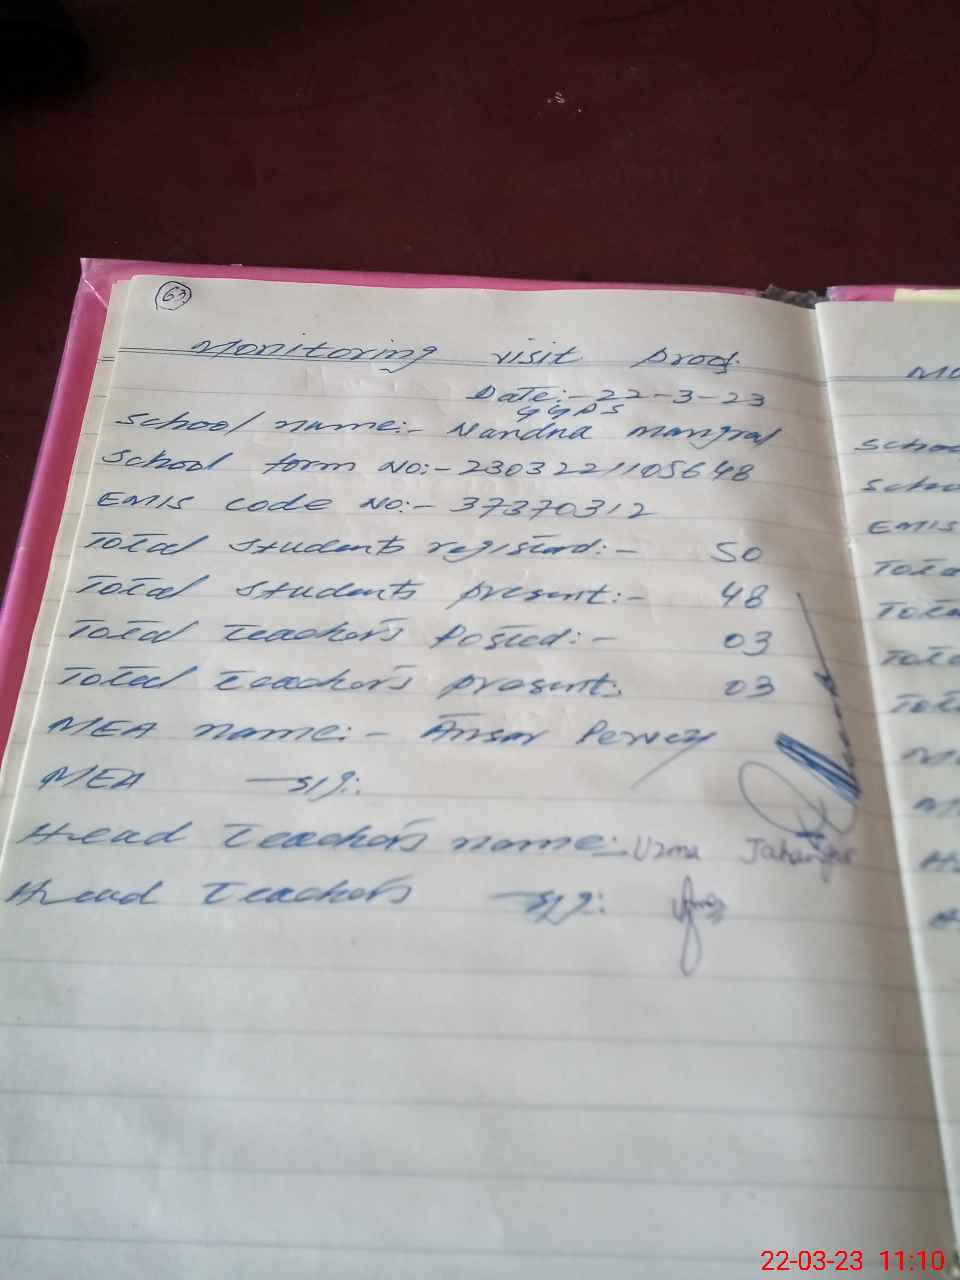 63
Monitoring visit proof
Date:- 22-3-23
GGPS
School name:- Nandna mangral
School form No:- 2303221105648
EMIS code No:- 37370312
Total students registerd:- 50
Total students present:- 48
Total teacher's Posted:- 03
Total teacher's present: 03
MEA name:- Ansar Pervez
MEA sig:
Head teacher's name:- Uzma Jahangir
Head teacher's sig:
Mo
School
Scho
EMIS
Tota
Tota
Tota
Tota
22-03-23 11:10